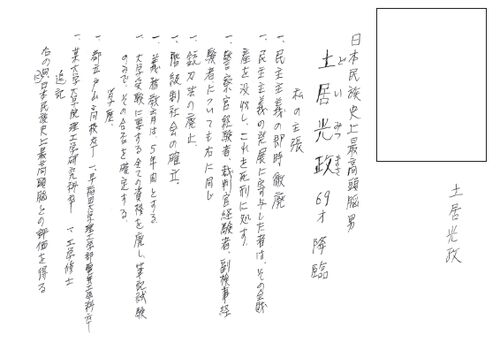 土居光政
日本民族史上最高頭脳男
ど い みつ まさ
土居光政 69才 降臨
私の主張
一、民主主義の即時撤廃
一、民主主義の発展に寄与した者は、その全財
産を没収し、これを死刑に処す。
一、警察官経験者、裁判官経験者、副検事経
験者についても右に同じ
一、銃刀法の廃止。
一、階級制社会の確立。
一、義務教育は、5年間とする。
大学受験に要する全ての資格を廃し、筆記試験
のみで、その合否を確定する。
学歴
一、都立 高校卒 一、早稲田大学理工学部 工学科卒
一、某大学大学院理工学研究科卒 工学修士
追記
右の 日本民族史上最高頭脳との評価を得る